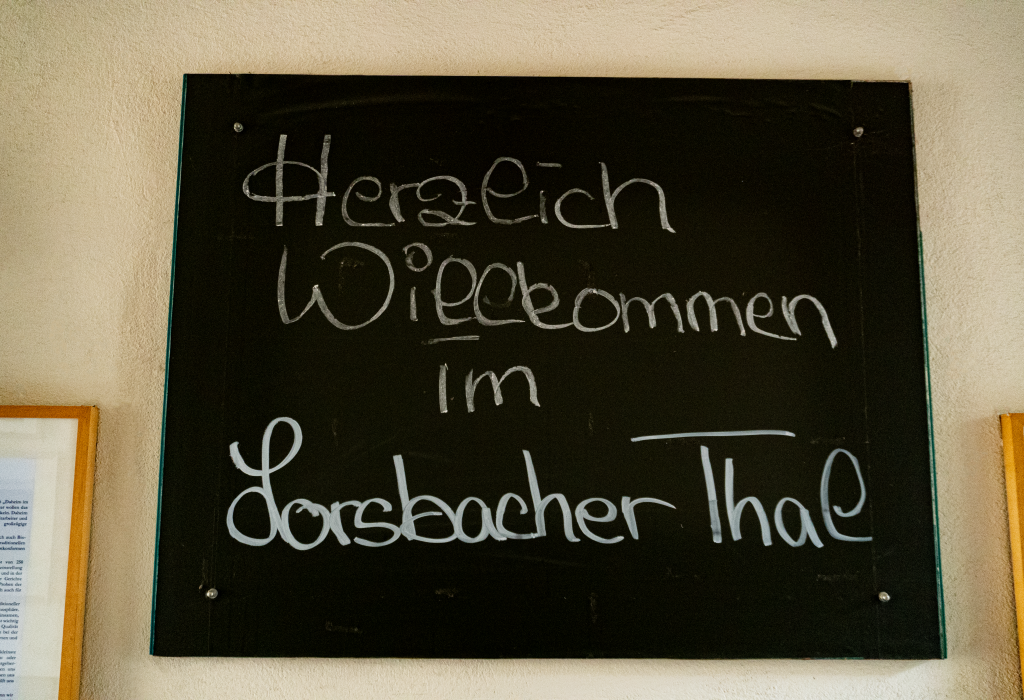 Herzlich
Willkommen
im
Lorsbacher Thal